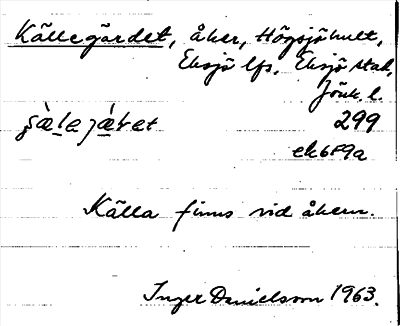 Källegärdet, åker, Högsjöhult,
Eksjö lfs. Eksjö stad,
Jönk. l.
299
ek689a
Källa finns vid åkern.
Inger Danielsson 1963.